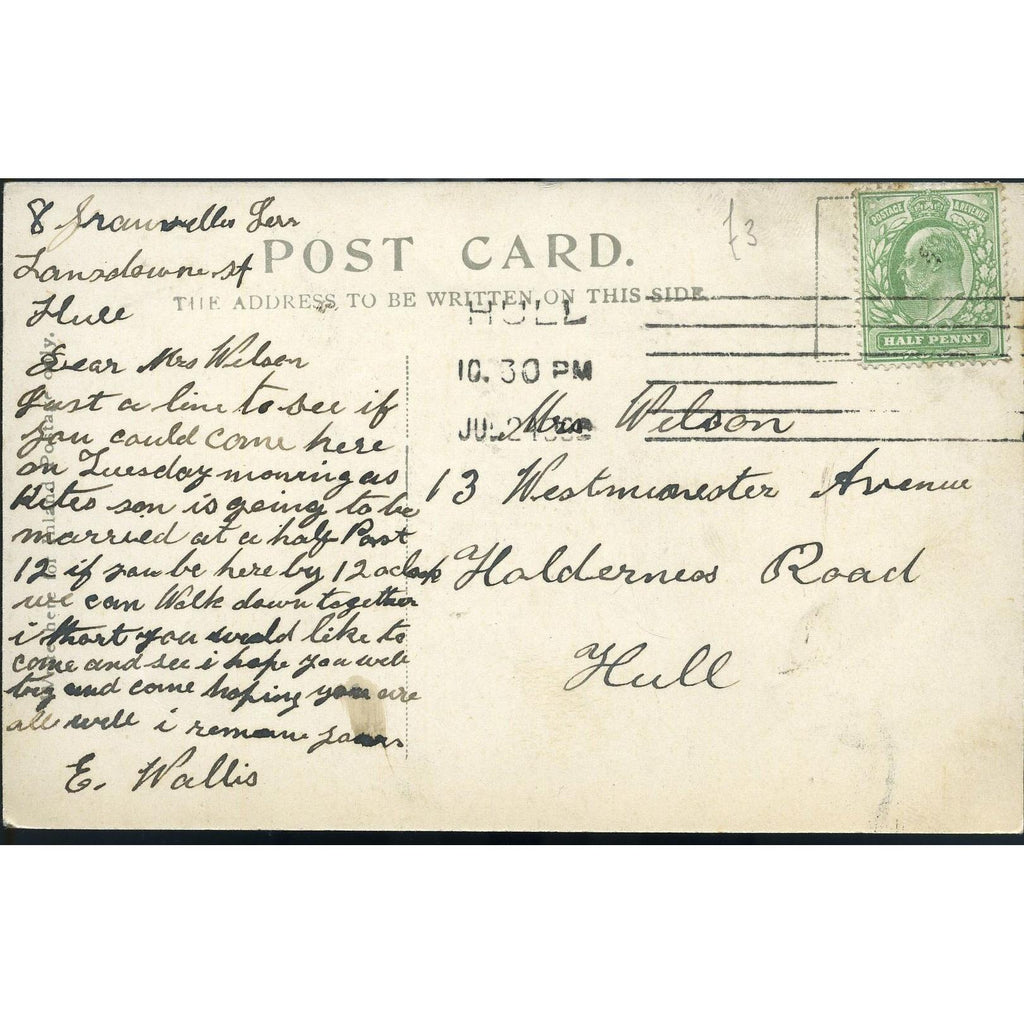 8 Granvelles Terr
Lansdowne st
Hull
£3
POSTAGE & REVENUE
HALF PENNY
POST CARD.
THE ADDRESS TO BE WRITTEN ON THIS SIDE.
HULL
10.30 PM
JUL 24
Dear Mrs Wilson
Just a line to see if
you could come here
on Tuesday morning as
Kates son is going to be
married at a half Past
12 if you be here by 12 oclock
we can Walk down together
i thort you would like to
come and see i hope you will
try and come hoping you are
all well i remane yours
E. Wallis
Mrs Wilson
13 Westmuonester Avenue
Holderness Road
Hull
here for Inland Postage only.